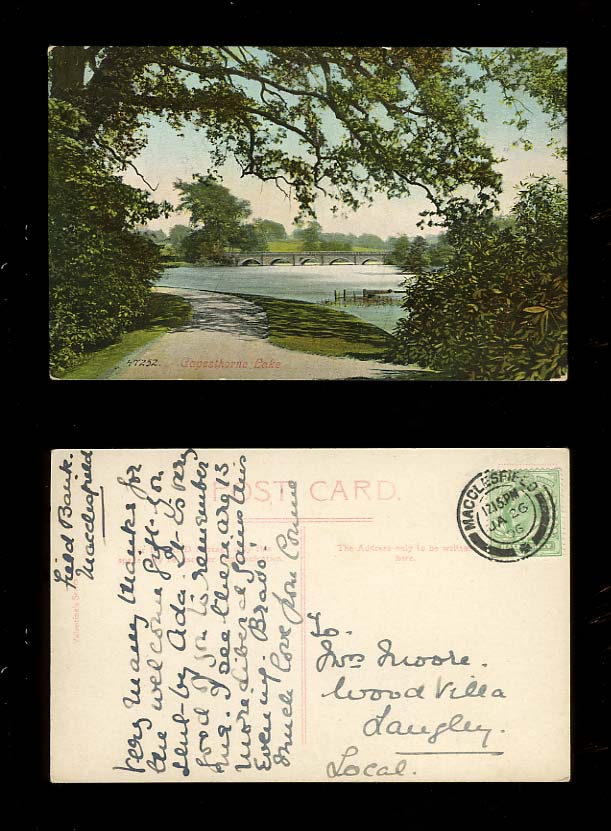 47252.   Capesthorne Lake
POST CARD.
The Address only to be written
here.
Valentine's Se
MACCLESFIELD
12.15PM
JA 26
06
Field Bank.
Macclesfield
Very many thanks for
the welcome gift you
sent by Ada. It is very
good of you to remember
me. I see there are 13
more Liberal gains this
Evening. Bravo!
Much love from Connie
To.
Mrs Moore.
Wood Villa
Langley.
Local.